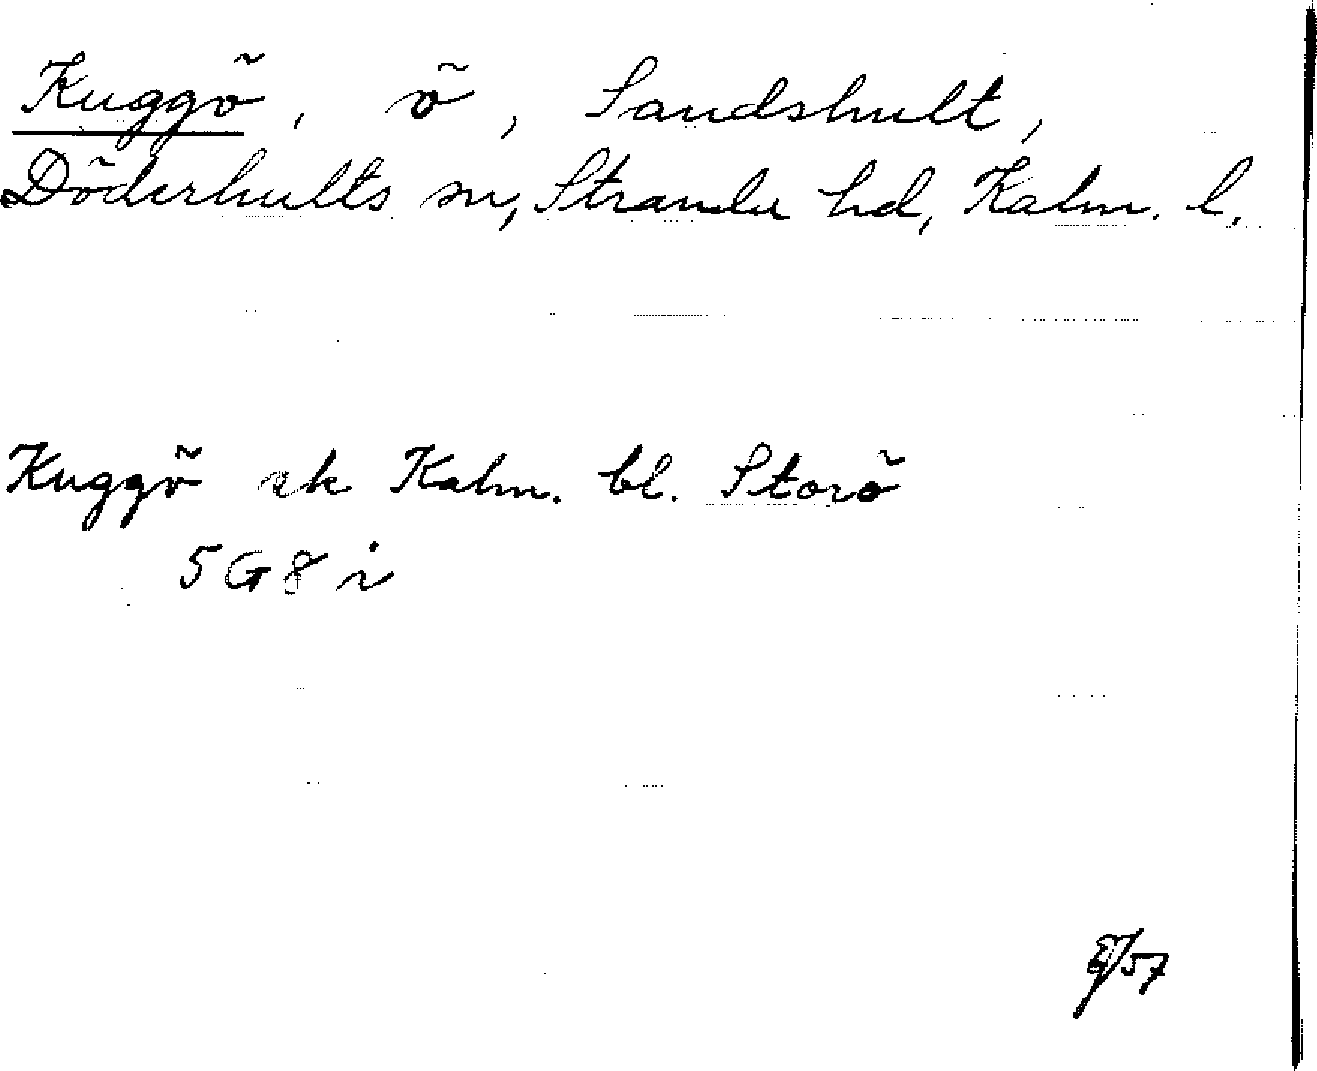 Kuggö, ö, Sandshult,
Döderhults sn, Stranda hd, Kalm. l.
Kuggö ek Kalm. bl. Storö
5G8i
/57